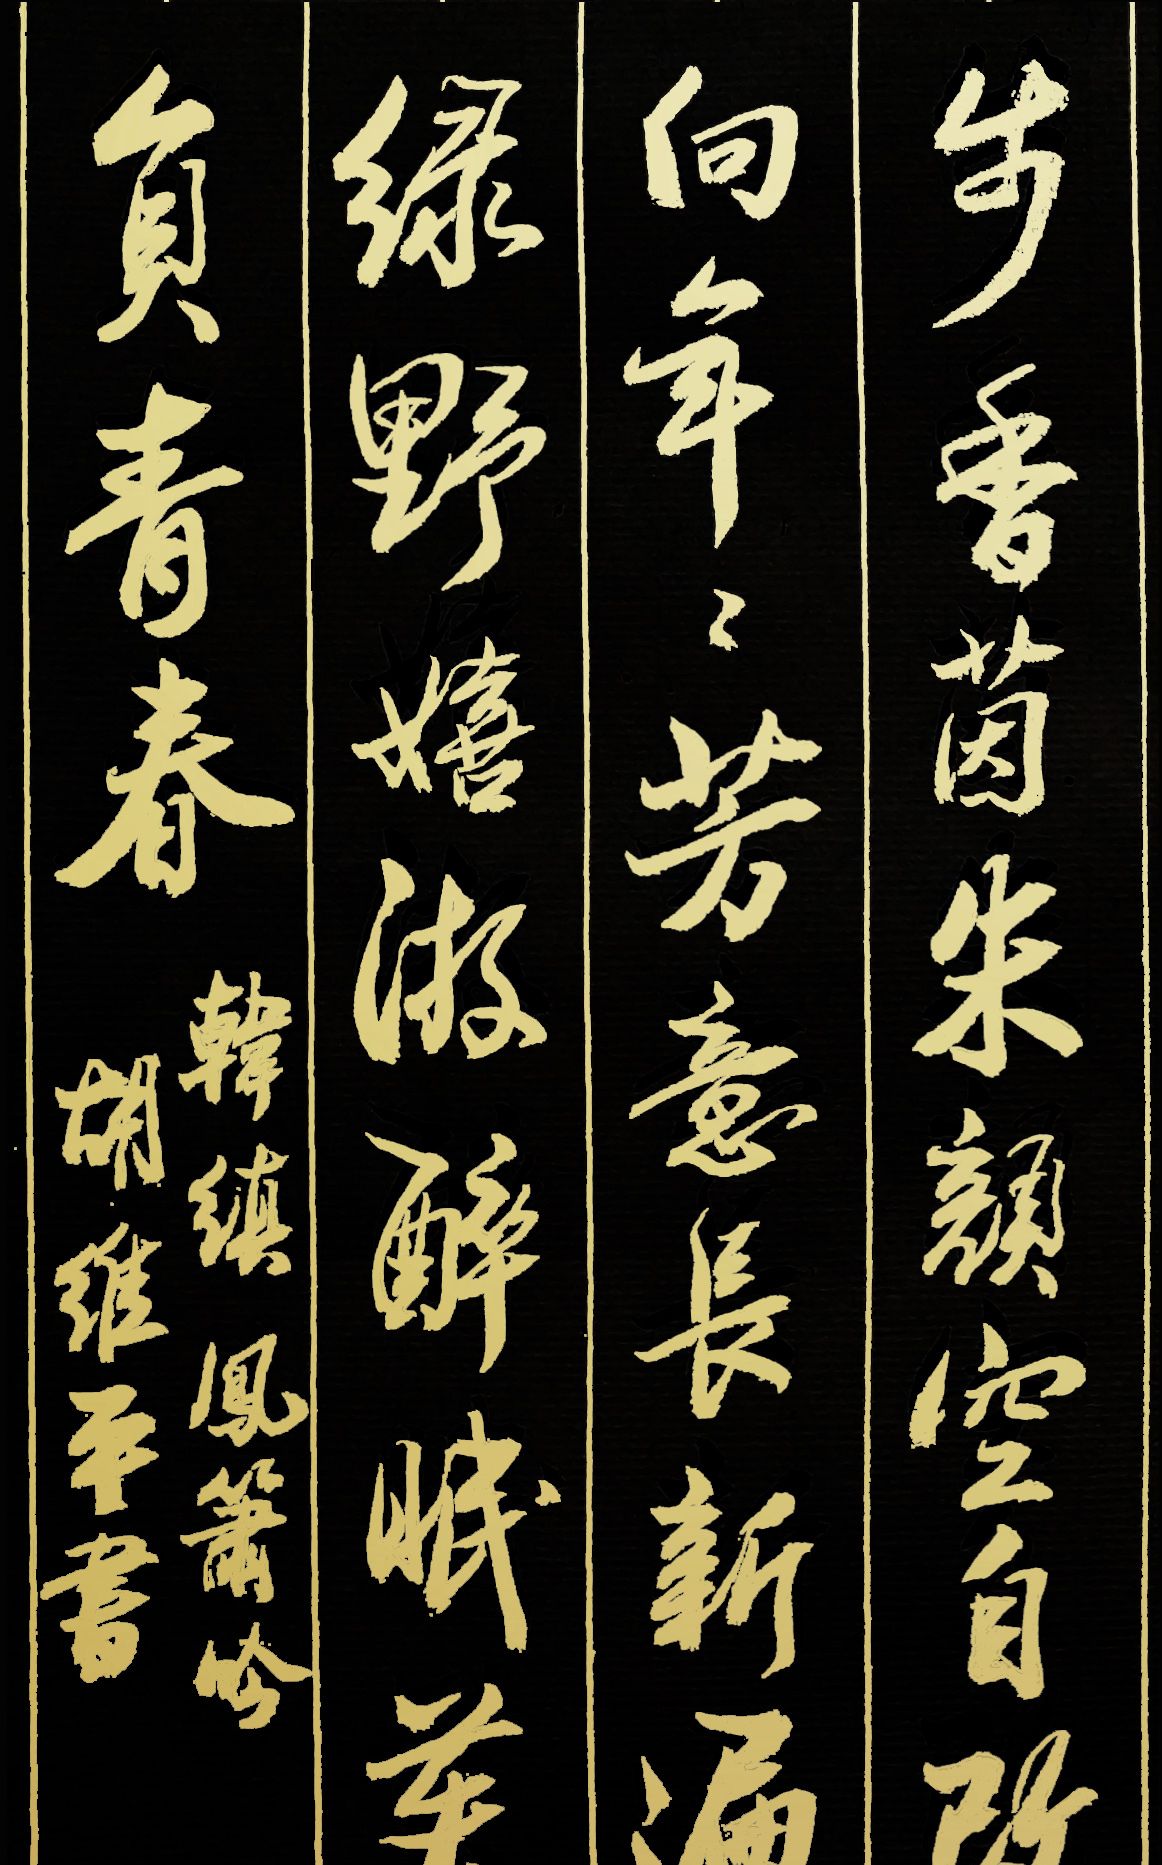 步香茵朱顔空自改
向年々芳意長新遍
緑野嬉游醉眠莫
負青春
韓縝鳳簫吟
胡維平書